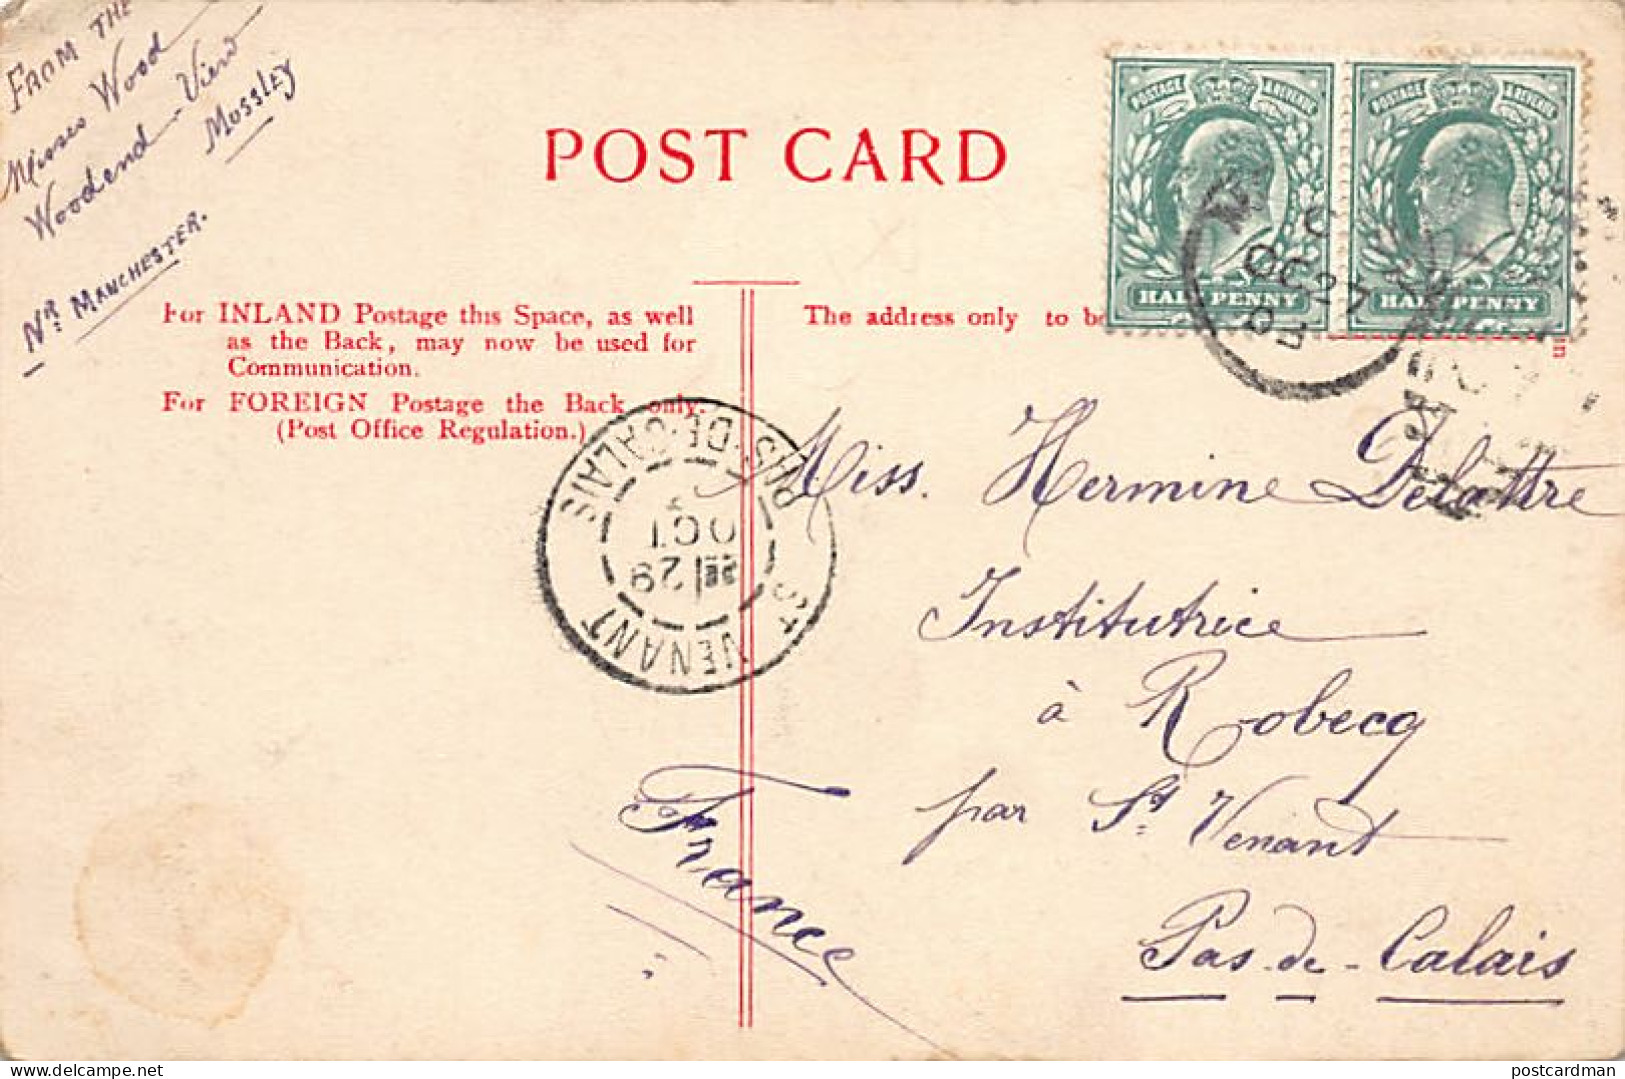 FROM THE
Misses Wood
Woodend-View
MOSSLEY
NR. MANCHESTER.
POST CARD
POSTAGE & REVENUE
HALF PENNY
POSTAGE & REVENUE
HALF PENNY
OC 27
For INLAND Postage this Space, as well
as the Back, may now be used for
Communication.
For FOREIGN Postage the Back only.
(Post Office Regulation.)
The address only to be
in
ST VENANT
PAS-DE-CALAIS
29
OCT
Miss. Hermine Delattre
Institutrice
à Robecq
par St. Venant
Pas-de-Calais
France
Delcampe.net
postcardman